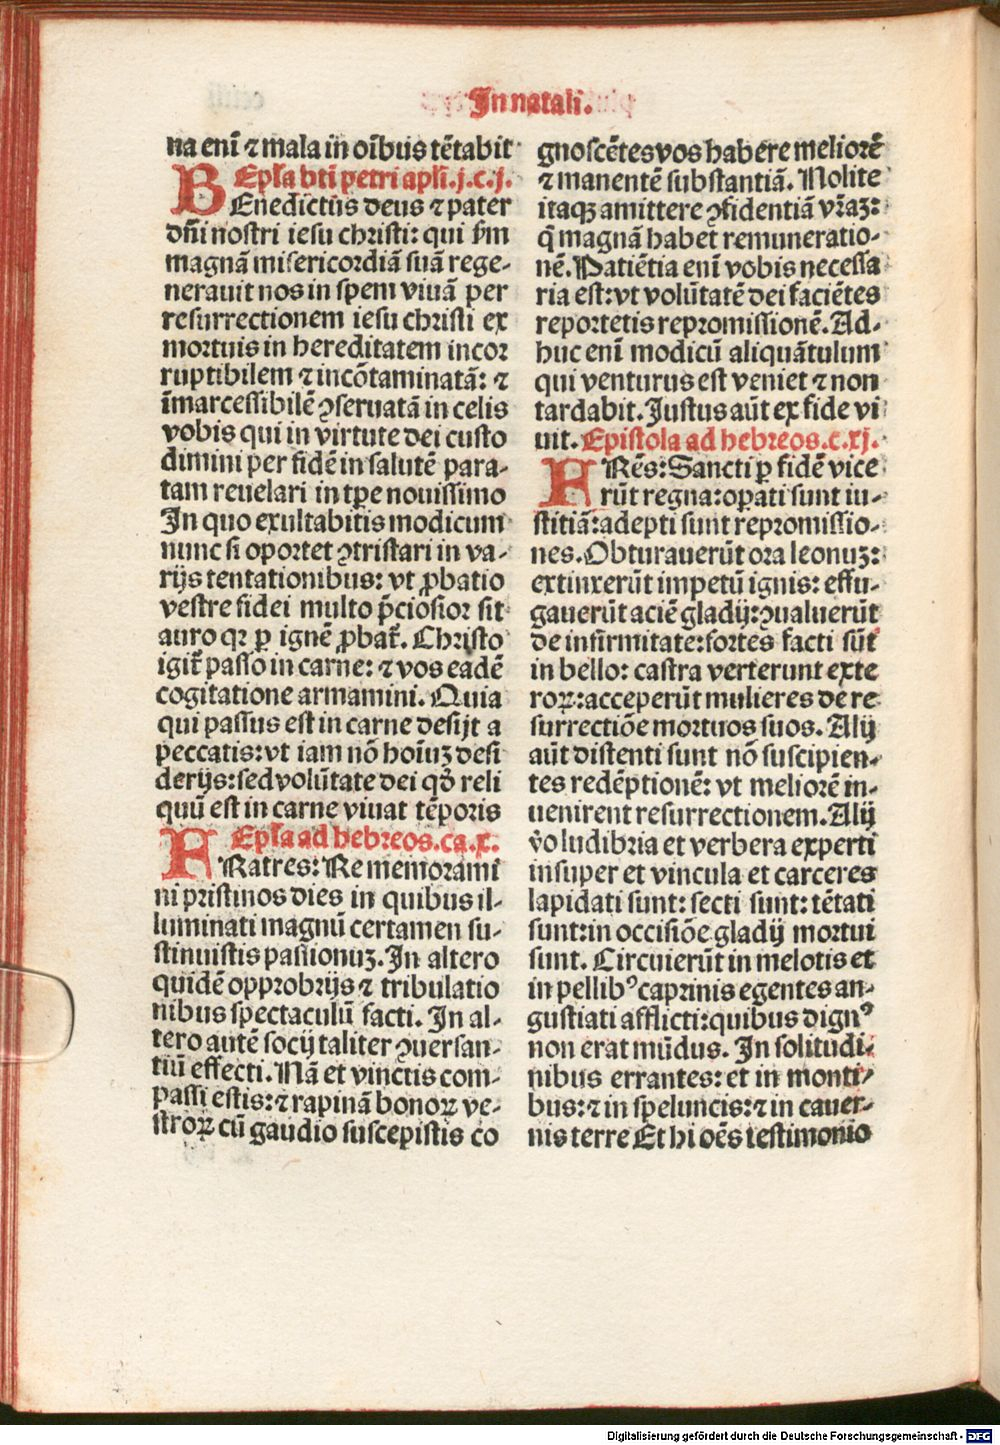 In natali.
na enī ⁊ mala in oībus tētabit
Epl̄a bt̄i petri apl̄i.j.c.j.
BEnedictus deus ⁊ pater
dn̄i nostri iesu christi: qui ẜm
magnā misericordiā suā rege-
nerauit nos in spem viuā per
resurrectionem iesu christi ex
mortuis in hereditatem incor
ruptibilem ⁊ incōtaminatā: ⁊
īmarcessibilē ꝯseruatā in celis
vobis qui in virtute dei custo
dimini per fidē in salutē para-
tam reuelari in tꝑe nouissimo
In quo exultabitis modicum
nunc si oportet ꝯtristari in va-
rijs tentationibus: vt ꝓbatio
vestre fidei multo p̄ciosior sit
auro qꝛ ꝑ ignē ꝓbat̄. Christo
igit̄ passo in carne: ⁊ vos eadē
cogitatione armamini. Quia
qui passus est in carne desijt a
peccatis: vt iam nō hoīuꝫ desi
derijs: sed volūtate dei qd̄ reli
quū est in carne viuat tēporis
Epl̄a ad hebreos.ca.x.
FRatres: Rememorami
ni pristinos dies in quibus il-
luminati magnū certamen su-
stinuistis passionuꝫ. In altero
quidē opprobrijs ⁊ tribulatio
nibus spectaculū facti. In al-
tero autē socij taliter ꝯuersan-
tiū effecti. Nā et vinctis com-
passi estis: ⁊ rapinā bonoꝝ ve-
stroꝝ cū gaudio suscepistis co
gnoscētes vos habere meliorē
⁊ manentē substantiā. Nolite
itaqꝫ amittere ꝯfidentiā vr̄aꝫ:
q̄ magnā habet remuneratio-
nē. Patiētia enī vobis necessa
ria est: vt volūtatē dei faciētes
reportetis repromissionē. Ad-
huc enī modicū aliquātulum
qui venturus est veniet ⁊ non
tardabit. Justus aūt ex fide vi
uit. Epistola ad hebreos.c.xj.
FRēs: Sancti ꝑ fidē vice
rūt regna: oꝑati sunt iu-
stitiā: adepti sunt repromissio-
nes. Obturauerūt ora leonuꝫ:
extinxerūt impetū ignis: effu-
gauerūt aciē gladij: ꝯualuerūt
de infirmitate: fortes facti sūt
in bello: castra verterunt exte
roꝝ: acceperūt mulieres de re
surrectiōe mortuos suos. Alij
aūt distenti sunt nō suscipien-
tes redēptionē: vt meliorē in-
uenirent resurrectionem. Alij
v̄o ludibria et verbera experti
insuper et vincula et carceres
lapidati sunt: secti sunt: tētati
sunt: in occisiōe gladij mortui
sunt. Circuierūt in melotis et
in pellibꝰ caprinis egentes an-
gustiati afflicti: quibus dignꝰ
non erat mūdus. In solitudi-
nibus errantes: et in monti-
bus: ⁊ in speluncis: ⁊ in cauer-
nis terre Et hi oēs testimonio
Digitalisierung gefördert durch die Deutsche Forschungsgemeinschaft - DFG